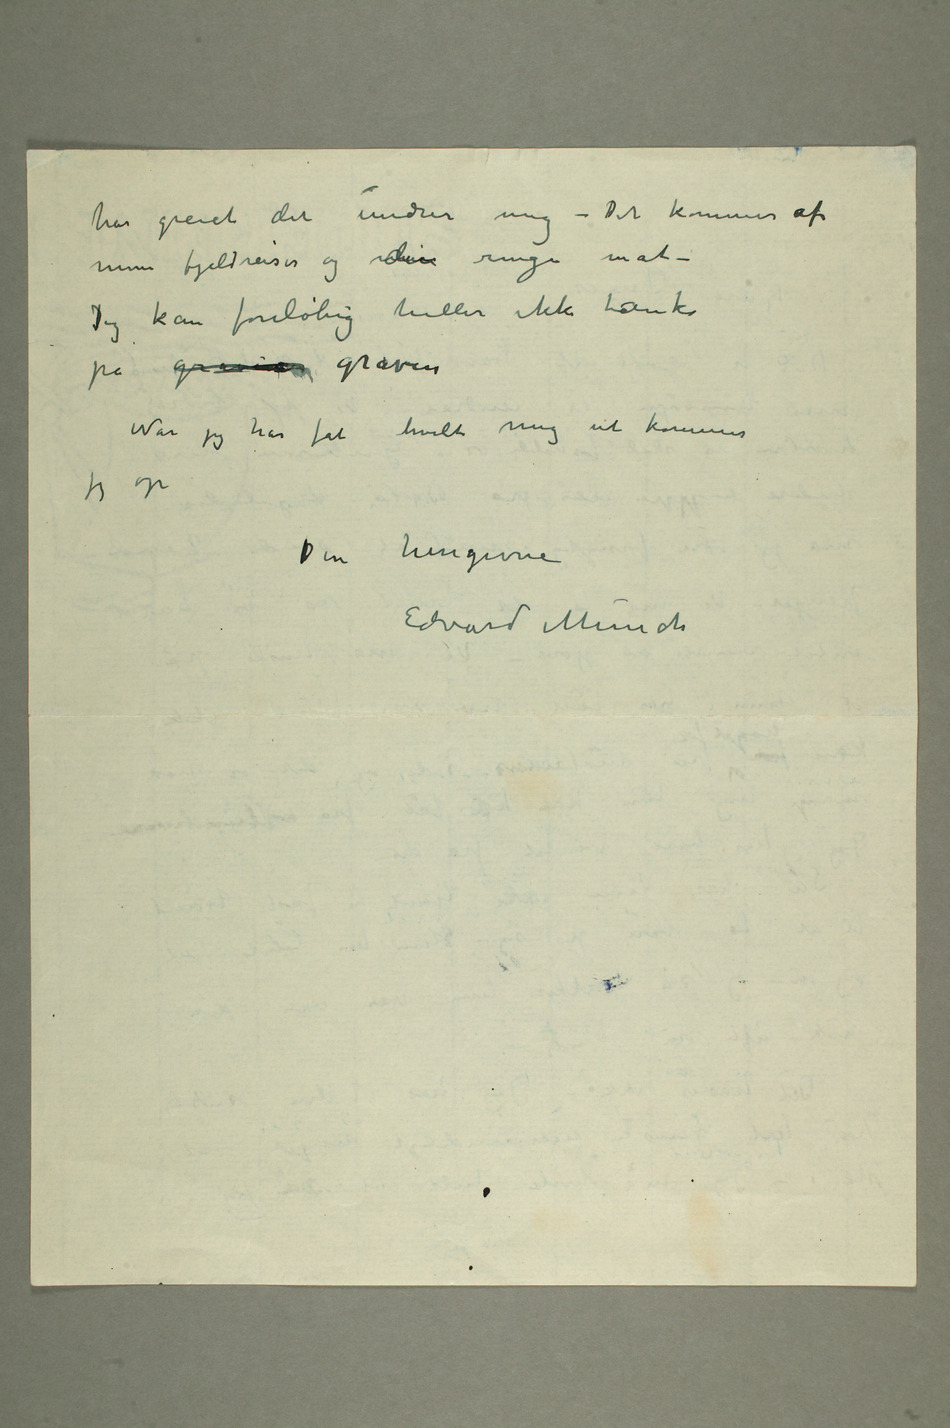 har greiet det undrer mig – Det kommer af
mine fjeldreiser og den ringe mat –
Jeg kan foreløbig heller ikke tænke
på graven graven
Når jeg har fåt hvilt mig ut kommer
jeg op
Din hengivne
Edvard Munch